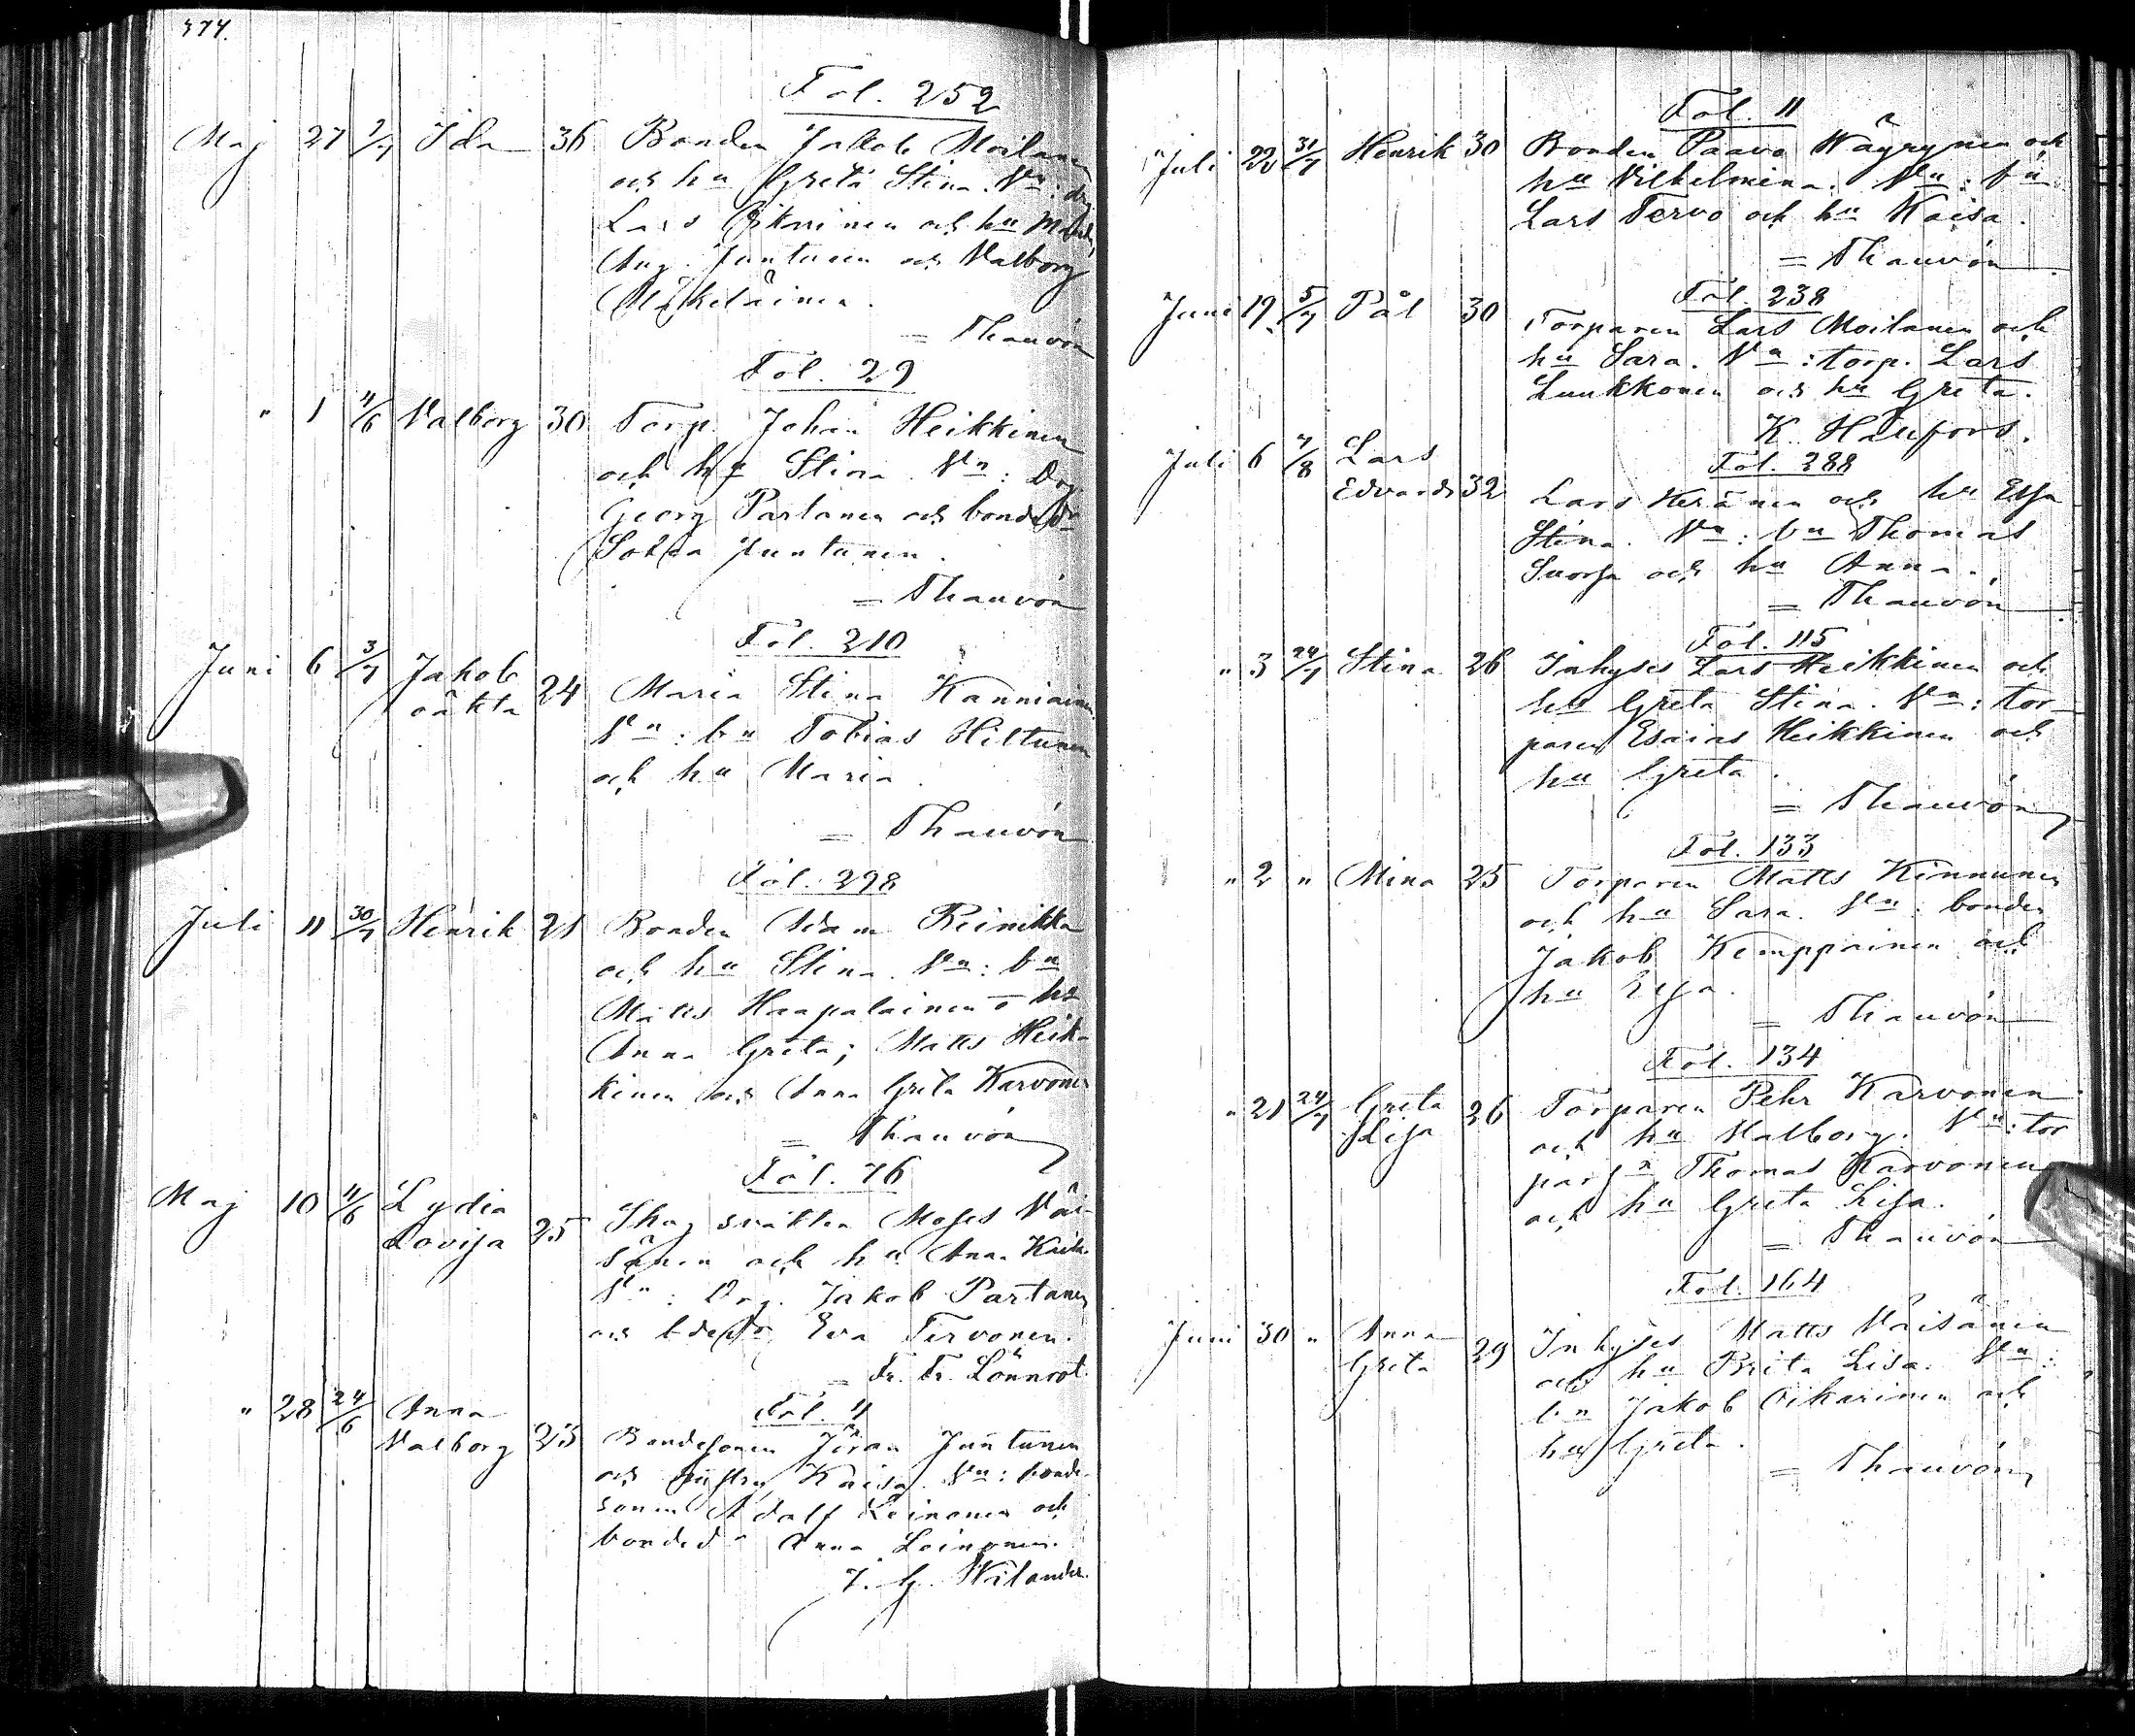 374.
Fol. 252
Maj 27 2/7 Ida 36 Bonden Jakob Moilanen
och hu Greta Stina. Vn: drg
Lars Oikarinen och hu
Aug. Juntunen och Valborg
Mikeläinen.
= Thauvón
Fol. 29
" 1 11/6 Valborg 30 Torp. Johan Heikkinen
och hu Stina. Vn: Drg
Georg Partanen och bonded
Sofia Juntunen.
= Thauvón
Fol. 210
Juni 6 3/7 Jakob
oäkta 24 Maria Stina Kanniainen
Vn: bn Tobias Hiltunen
och hu Maria.
= Thauvón
Fol. 298
Juli 11 30/7 Henrik 21 Bonden Adam Reinikka
och hu Stina. Vn: bn
Matts Haapalainen o hu
Anna Greta; Matts Heik-
kinen och Anna Greta Karvonen
= Thauvón
Fol. 76
Maj 10 11/6 Lydia
Lovisa 25 Skogsvakten Moses Väi-
sänen och hu Anna Kaisa
Vn: Drg. Jakob Partanen
och bdedr Eva Tervonen.
= Fr. Fr. Lönnrot.
Fol. 4
" 28 24/6 Anna
Valborg 23 Bondesonen Jöran Juntunen
och hustru Kaisa. Vn: bonde-
sonen Adolf Leinonen och
bonded Anna Leinonen.
J. G. Wilander.
Fol. 11
Juli 22 31/7 Henrik 30 Bonden Paavo Wäyrynen och
hu Vilhelmina. Vn: bn
Lars Tervo och hu Kaisa.
= Thauvón
Fol. 238
Juni 19 5/7 Pål 30 Torparen Lars Moilanen och
hu Sara. Vn: torp. Lars
Luukkonen och hu Greta.
K. Hällfors.
Fol. 288
Juli 6 7/8 Lars
Edvard 32 Lars Keränen och hu Elsa
Stina. Vn: bn Thomas
Suorsa och hu Anna.
= Thauvón
Fol. 115
" 3 24/7 Stina 26 Inhyses Lars Heikkinen och
hu Greta Stina. Vn: tor-
paren Esaias Heikkinen och
hu Greta.
= Thauvón
Fol. 133
" 2 " Mina 25 Torparen Matts Kinnunen
och hu Sara. Vn: bonden
Jakob Kemppainen och
hu Elsa.
= Thauvón
Fol. 134
" 21 24/7 Greta
Lisa 26 Torparen Pehr Karvonen
och hu Valborg. Vn: tor
parsn Thomas Karvonen
och hu Greta Lisa.
= Thauvón
Fol. 164
Juni 30 " Anna
Greta 29 Inhyses Matts Väisänen
och hu Brita Lisa. Vn:
bn Jakob Oikarinen och
hu Greta.
= Thauvón